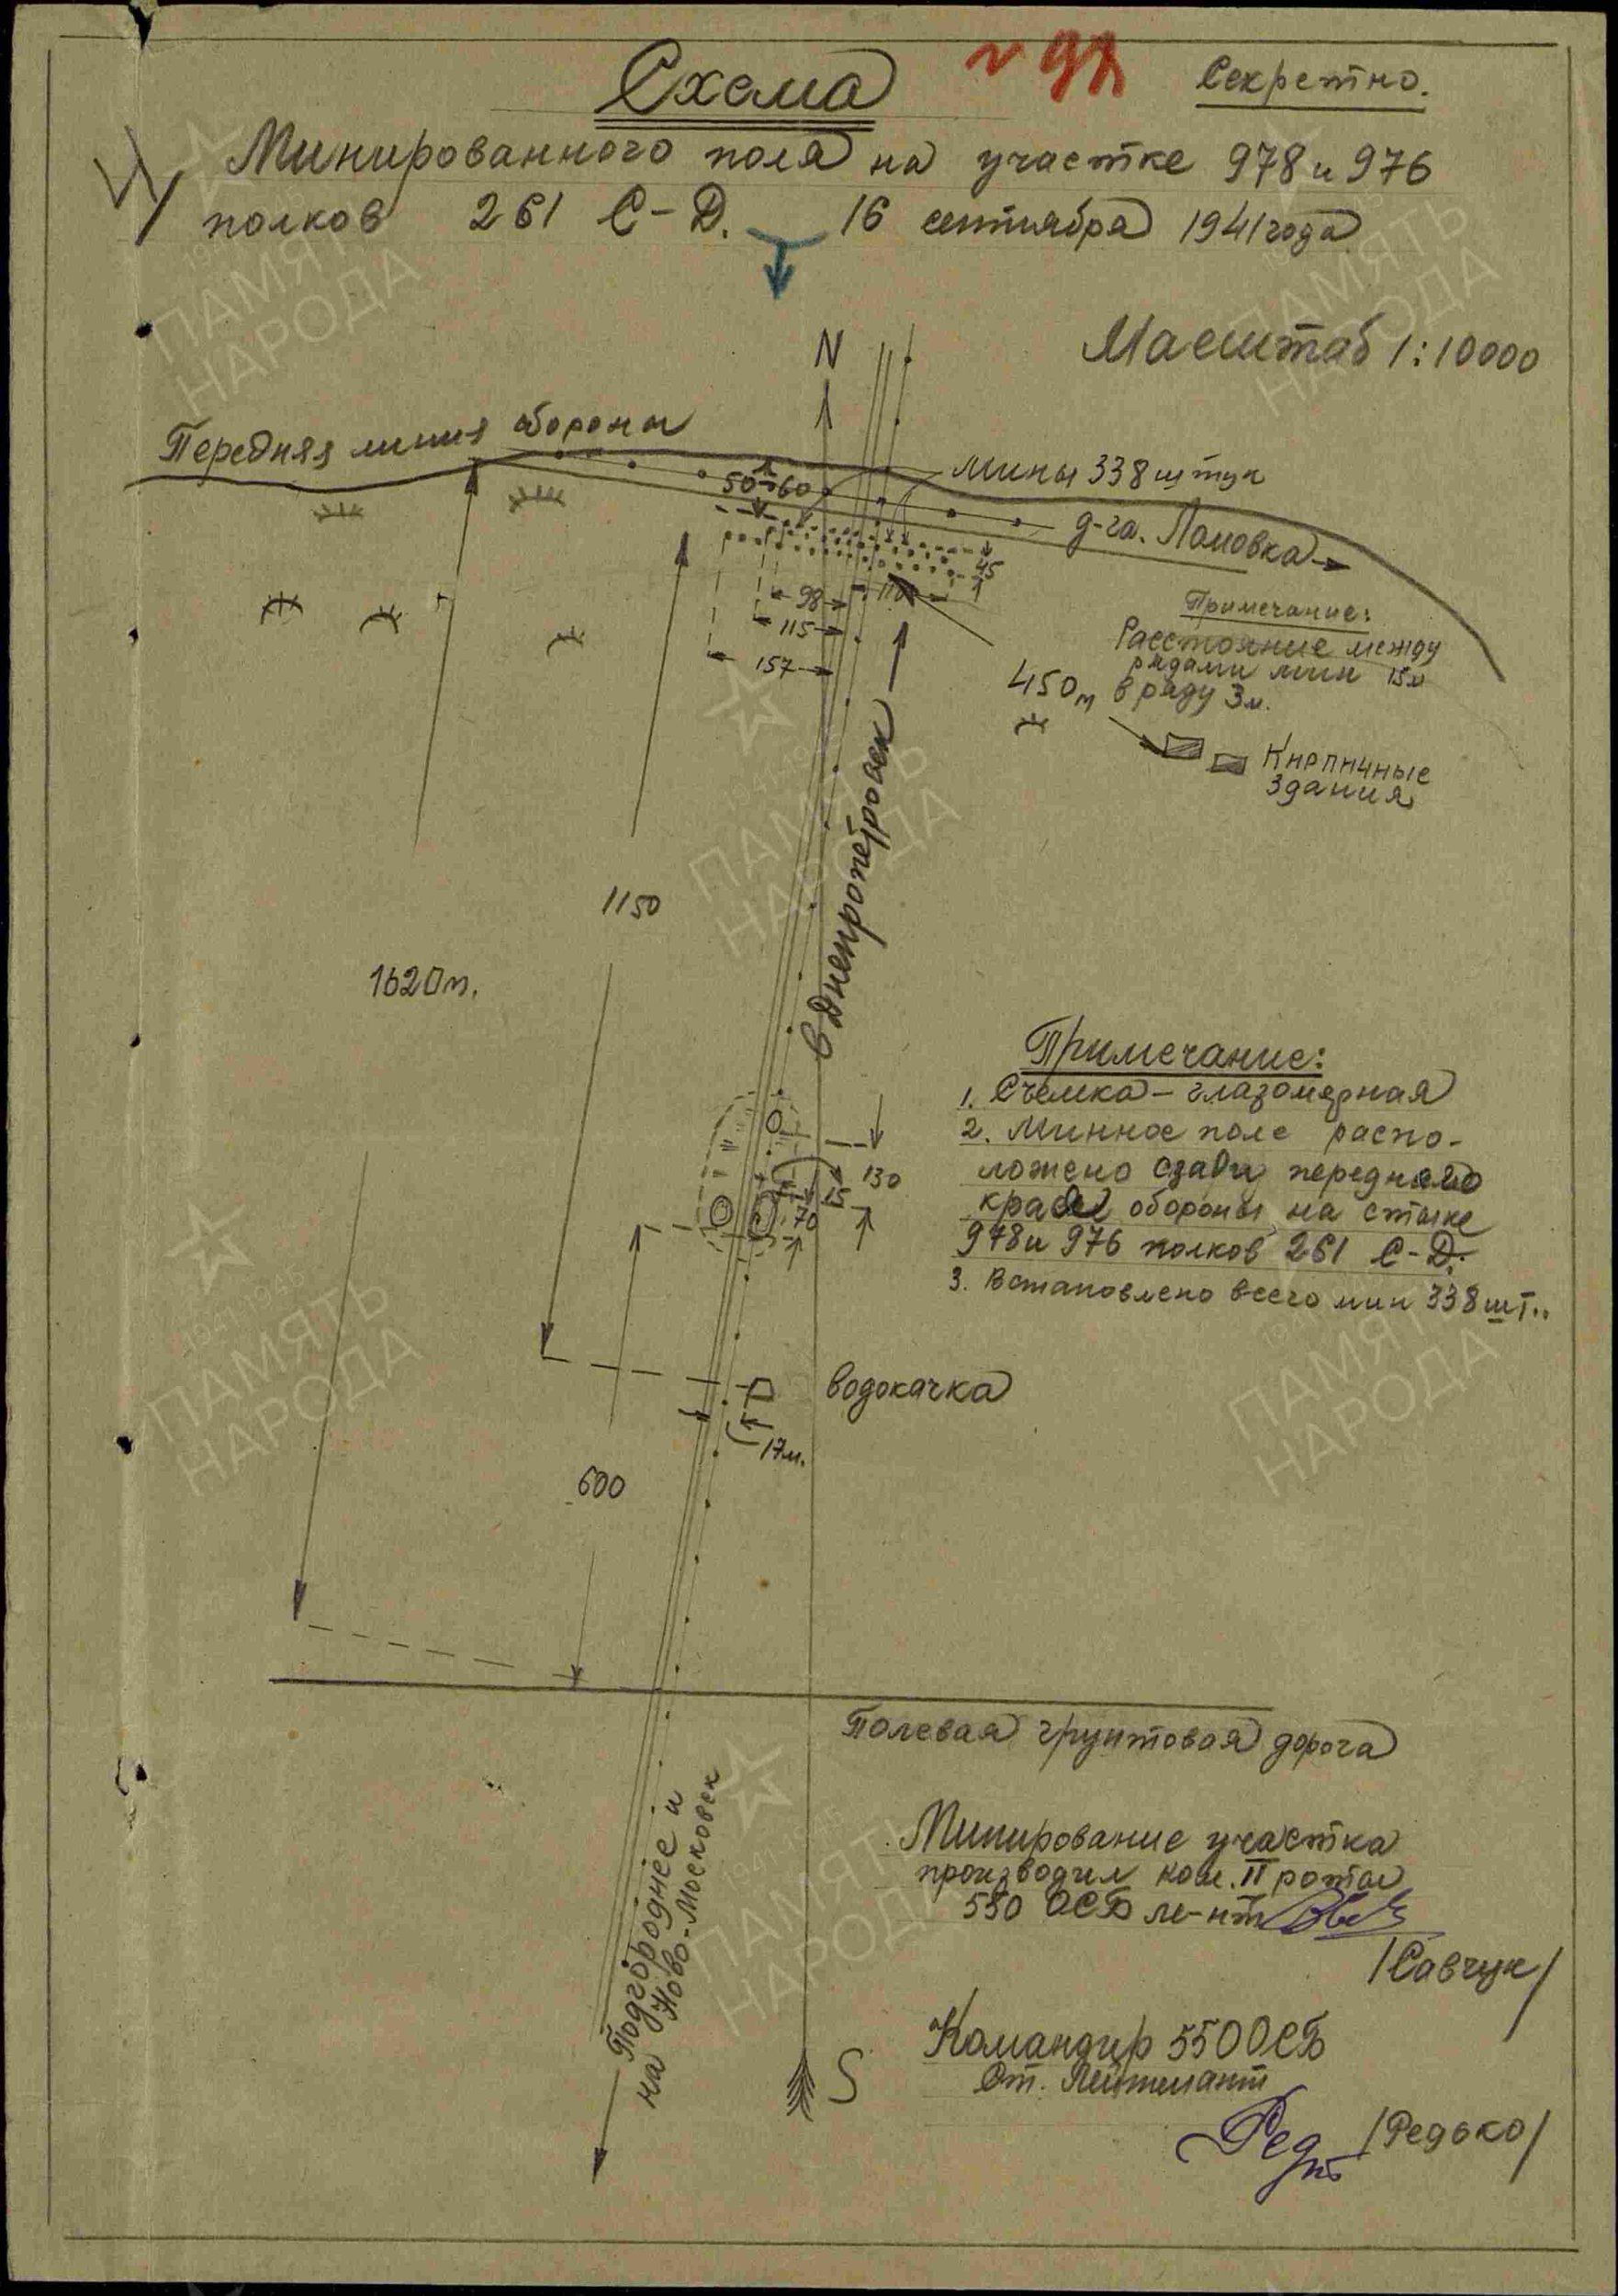 Схема
Секретно.
Минированного поля на участке 978 и 976
полков 261 С-Д. 16 сентября 1941 года
Масштаб 1:10000
N
Передняя линия обороны
50-60
мины 338 штук
д-га. Ломовка
45
98
110
115
157
Примечание:
Расстояние между
рядами мин 15м
в ряду 3м.
450м
Кирпичные
здания
в Днепропетровск
1150
1620м.
Примечание:
1. Съемка – глазомерная
2. Минное поле распо-
ложено сзади переднего
края обороны на стыке
978 и 976 полков 261 С-Д.
3. Встановлено всего мин 338 шт..
130
15
70
водокачка
17м.
600
Полевая грунтовая дорога
на Подгороднее и
Ново-Московск
Минирование участка
производил ком. II роты
550 ОСБ ле-нт
/Савчук/
Командир 550 ОСБ
Ст. Лейтенант
/Редько/
S
ПАМЯТЬ
НАРОДА